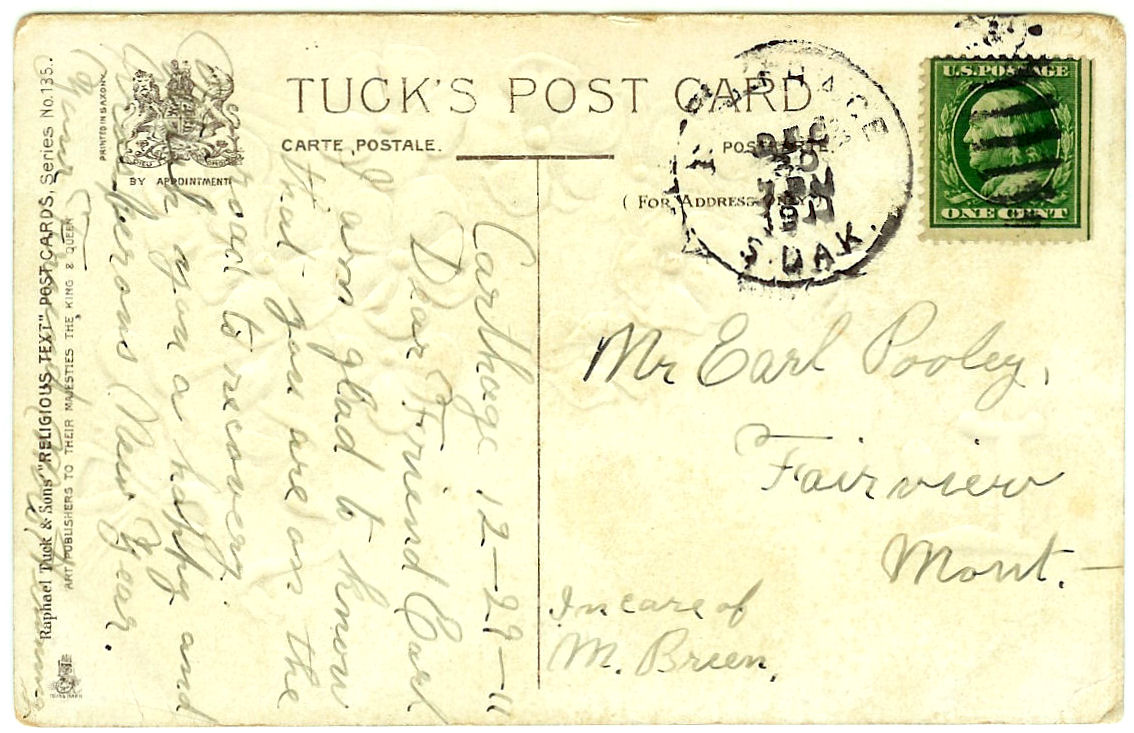 TUCK'S POST CARD
CARTE POSTALE.
POSTKARTE.
( For Address Only )
CARTHAGE
DEC
30
1911
S. DAK.
U.S. POSTAGE
ONE CENT
Mr Earl Pooley,
Fairview
Mont.
In care of
M. Breen,
Carthage 12-29-11
Dear Friend Earl
I am glad to know
that you are on the
road to recovery.
Wish you a happy and
Prosperous New Year.
Yours Fr
PRINTED IN SAXONY
BY APPOINTMENT
Raphael Tuck & Sons' "RELIGIOUS TEXT" POSTCARDS, Series No. 135.
ART PUBLISHERS TO THEIR MAJESTIES THE KING & QUEEN